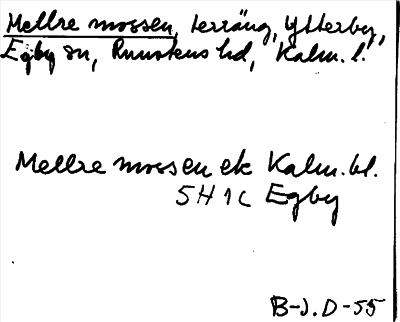 Mellre mossen, terräng, Ytterby,
Egby sn, Runstens hd, Kalm. l.
Mellre mossen ek Kalm. bl.
5H 1c Egby
B-J. D-55